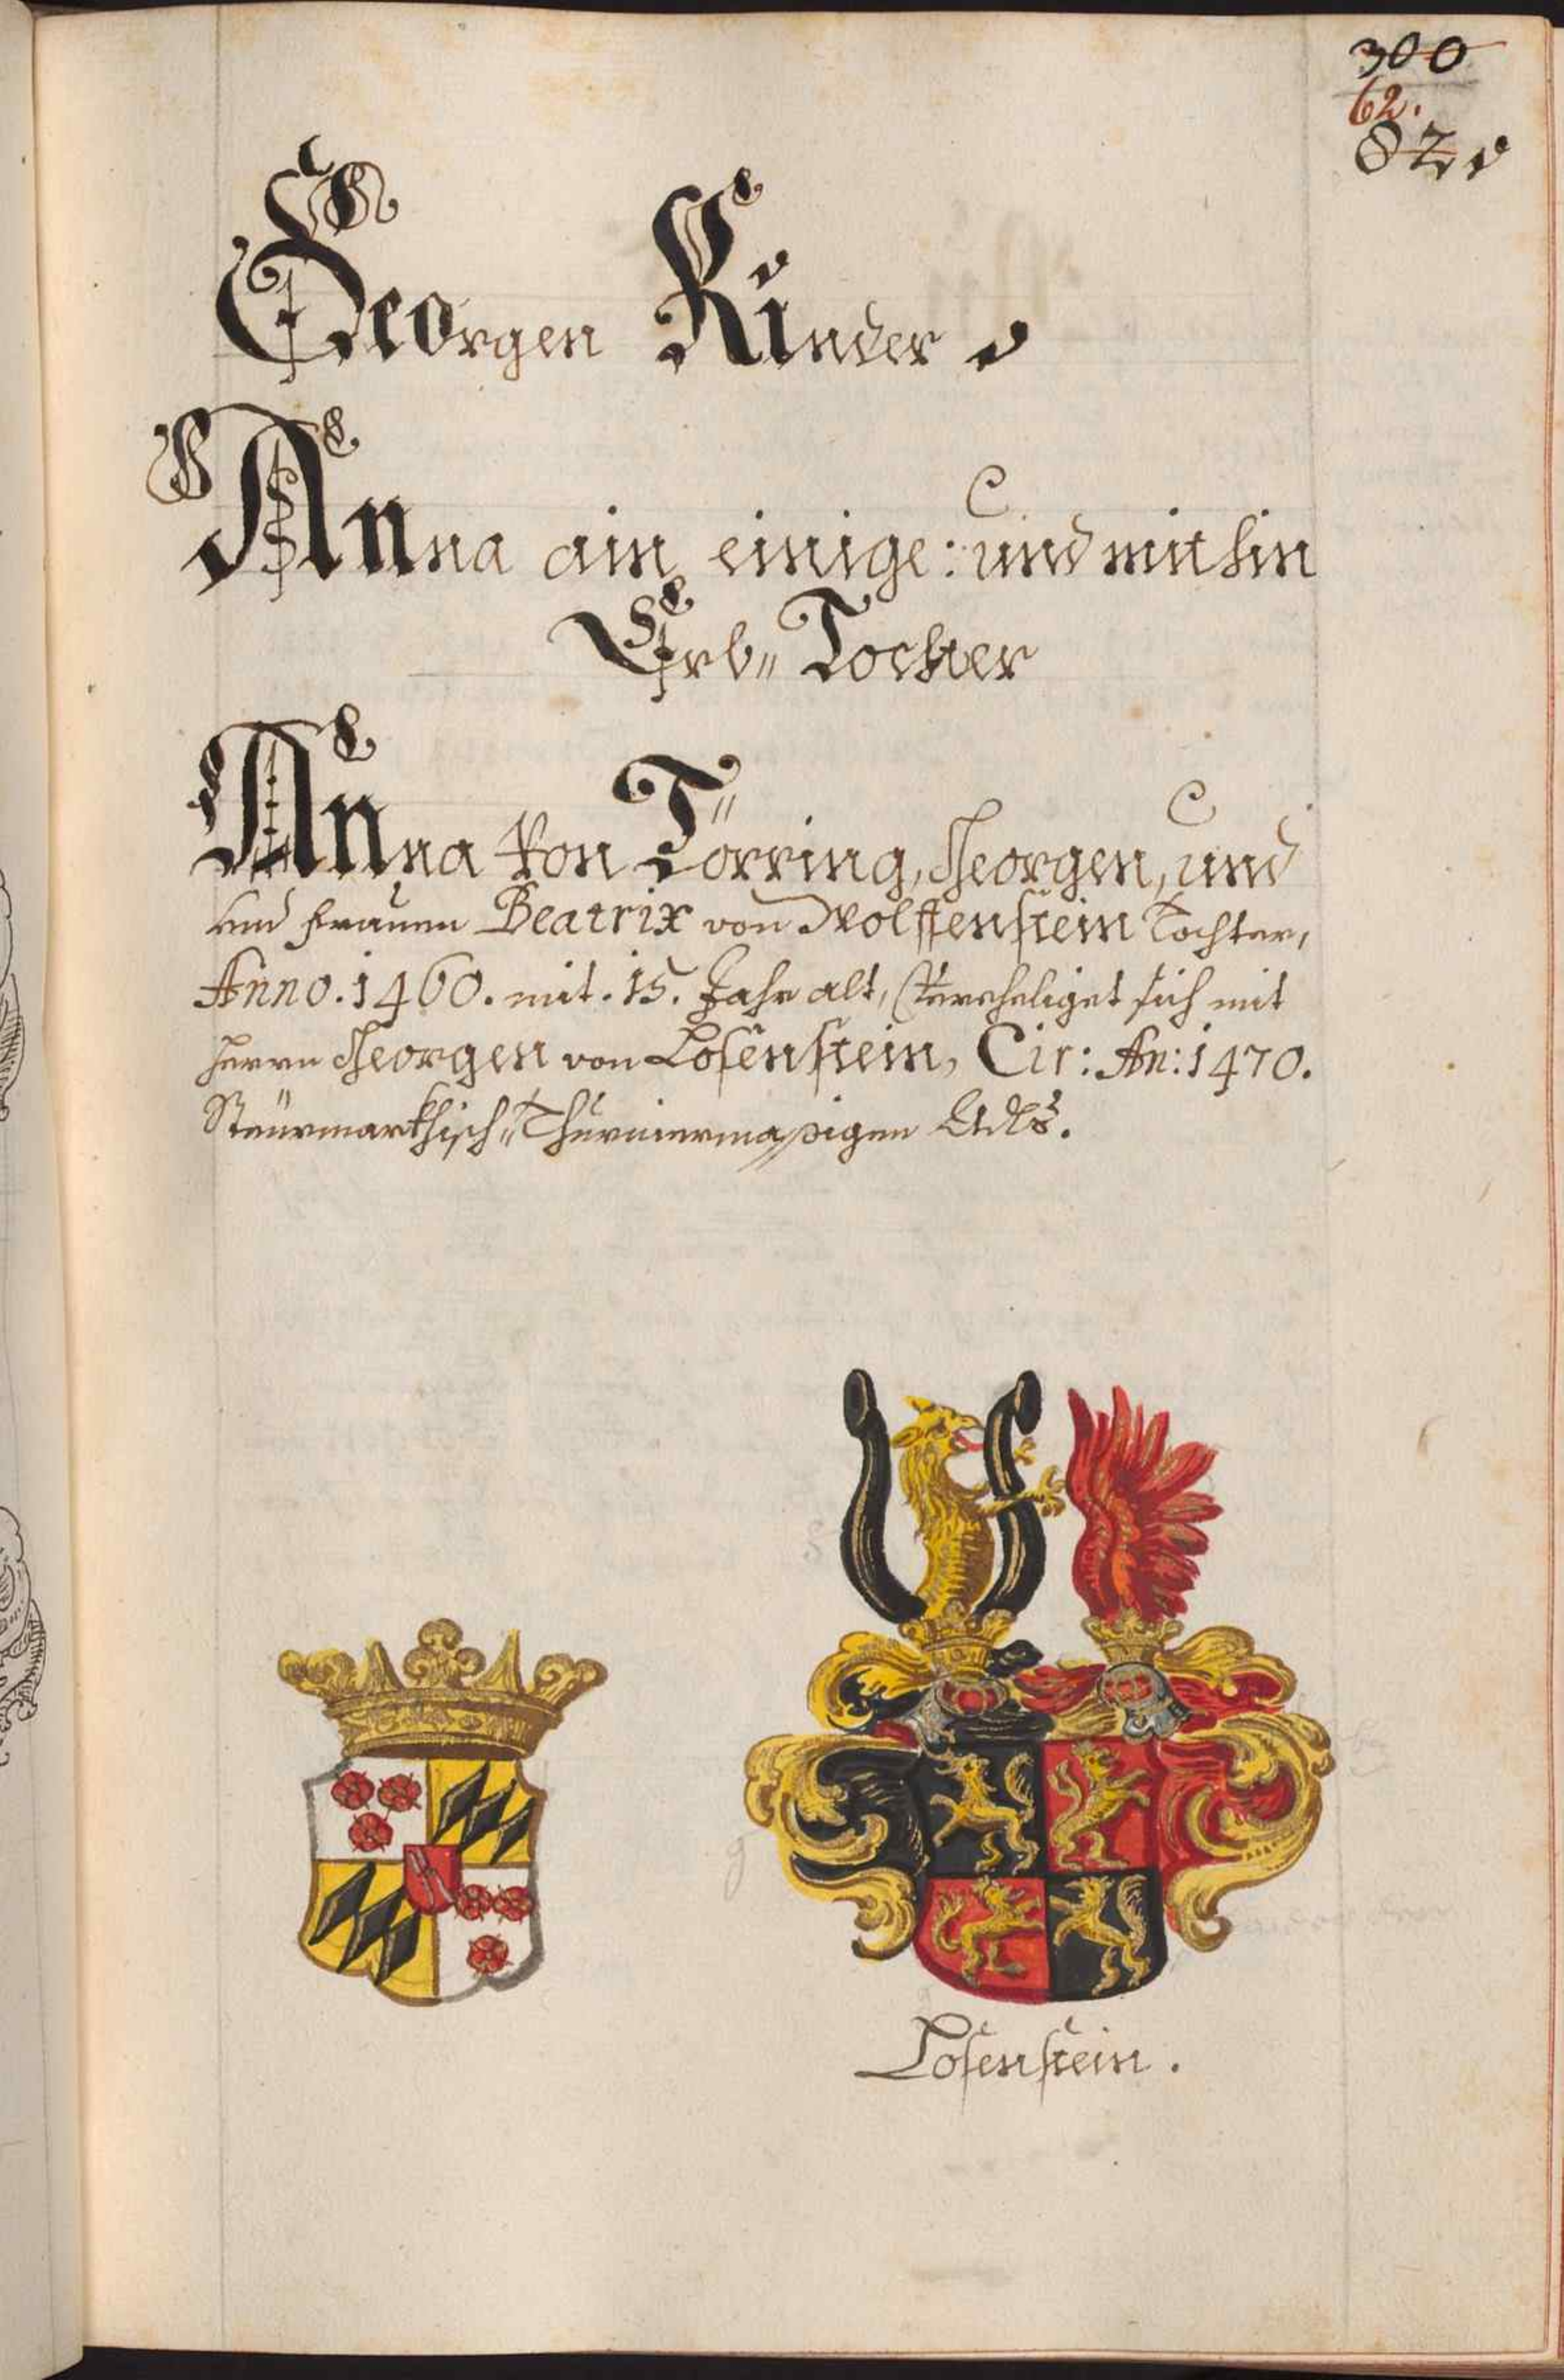 300
62.
82.
Georgen Kinder.
Anna ain einige: und mithin
Erb„ Tochter
Anna von Törring, Georgen, und
und frauen Beatrix von Wolffenstein Tochter,
Anno. 1460. mit. 15. Jahr alt, Vereheliget sich mit
herrn Georgen von Losenstein, Cir: An: 1470.
Steürmarkhisch„ Thurniermaßigen Adls.
Losenstein.